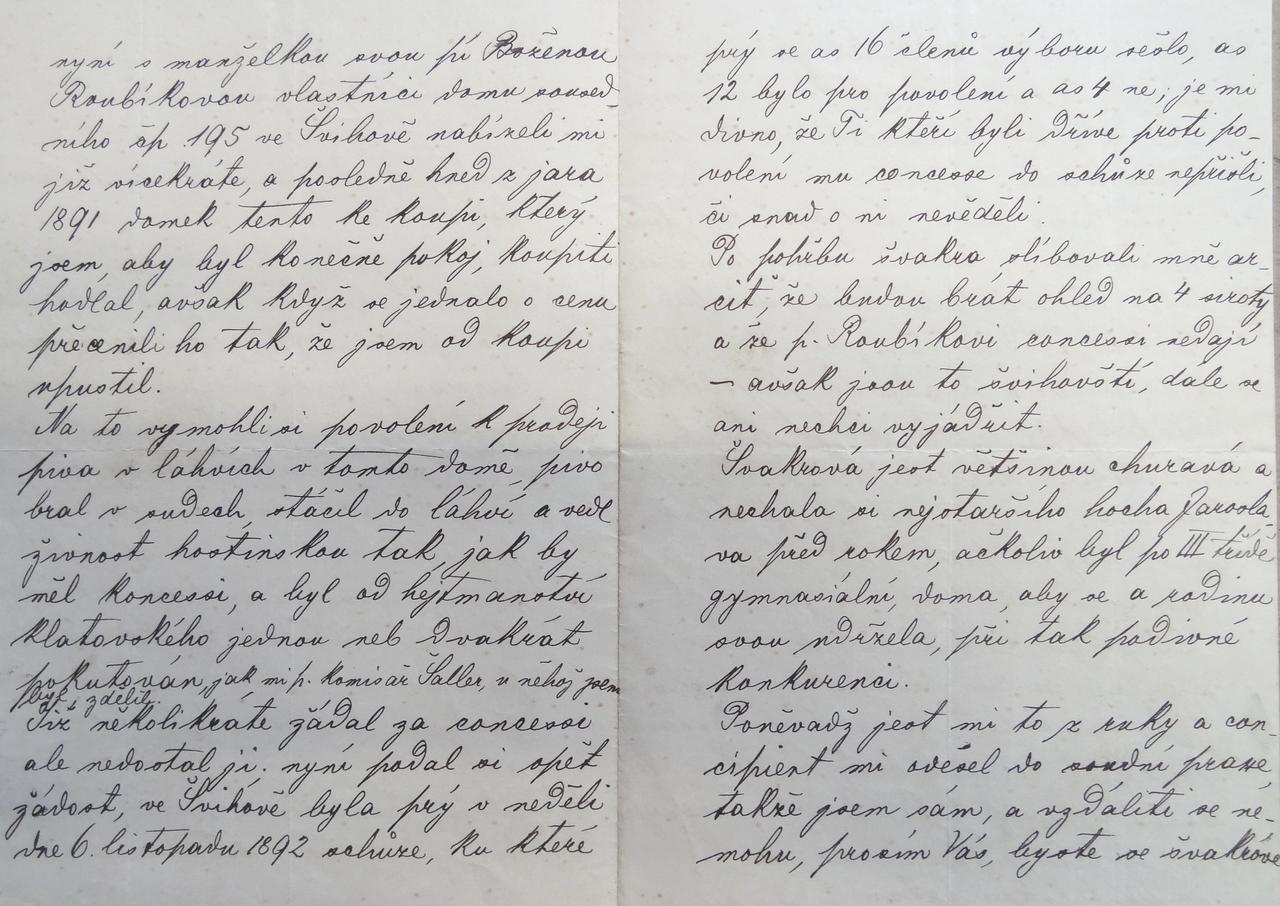 nyní s manželkou svou pí Boženou
Roubíkovou vlastníci domu soused-
ního čp. 195 ve Švihově nabízeli mi
již vícekráte, a posledně hned z jara
1891 domek tento ke koupi, který
jsem, aby byl konečně pokoj, koupiti
hodlal, avšak když se jednalo o cenu
přecenili ho tak, že jsem od koupi
upustil.
Na to vymohli si povolení k prodeji
piva v láhvích v tomto domě, pivo
bral v sudech, stáčil do láhví a vedl
živnost hostinskou tak, jak by
měl koncessi, a byl od hejtmanství
klatovského jednou neb dvakrát
pokutován, jak mi p. komisař Šaller, u něhož jsem
byl, zdělil.
Již několikráte žádal za concessi
ale nedostal ji. nyní podal si opět
žádost, ve Švihově byla prý v neděli
dne 6. listopadu 1892 schůze, ku které
prý se as 16 členů výboru sešlo, as
12 bylo pro povolení a as 4 ne; je mi
divno, že Ti kteří byli dříve proti po-
volení mu concesse do schůze nepřišli,
či snad o ni nevěděli.
Po pohřbu švakra slibovali mně ar-
cit, že budou brát ohled na 4 siroty
a že p. Roubíkovi concessi nedají
— avšak jsou to švihovští, dále se
ani nechci vyjádřit.
Švakrová jest většinou churavá a
nechala si nejstaršího hocha Jarosla-
va před rokem, ačkoliv byl po III třídě
gymnasiální, doma, aby se a rodinu
svou udržela, při tak podivné
konkurenci.
Poněvadž jest mi to z ruky a con-
cipient mi odešel do soudní praxe
takže jsem sám, a vzdáliti se ne-
mohu, prosím Vás, byste se švakrové